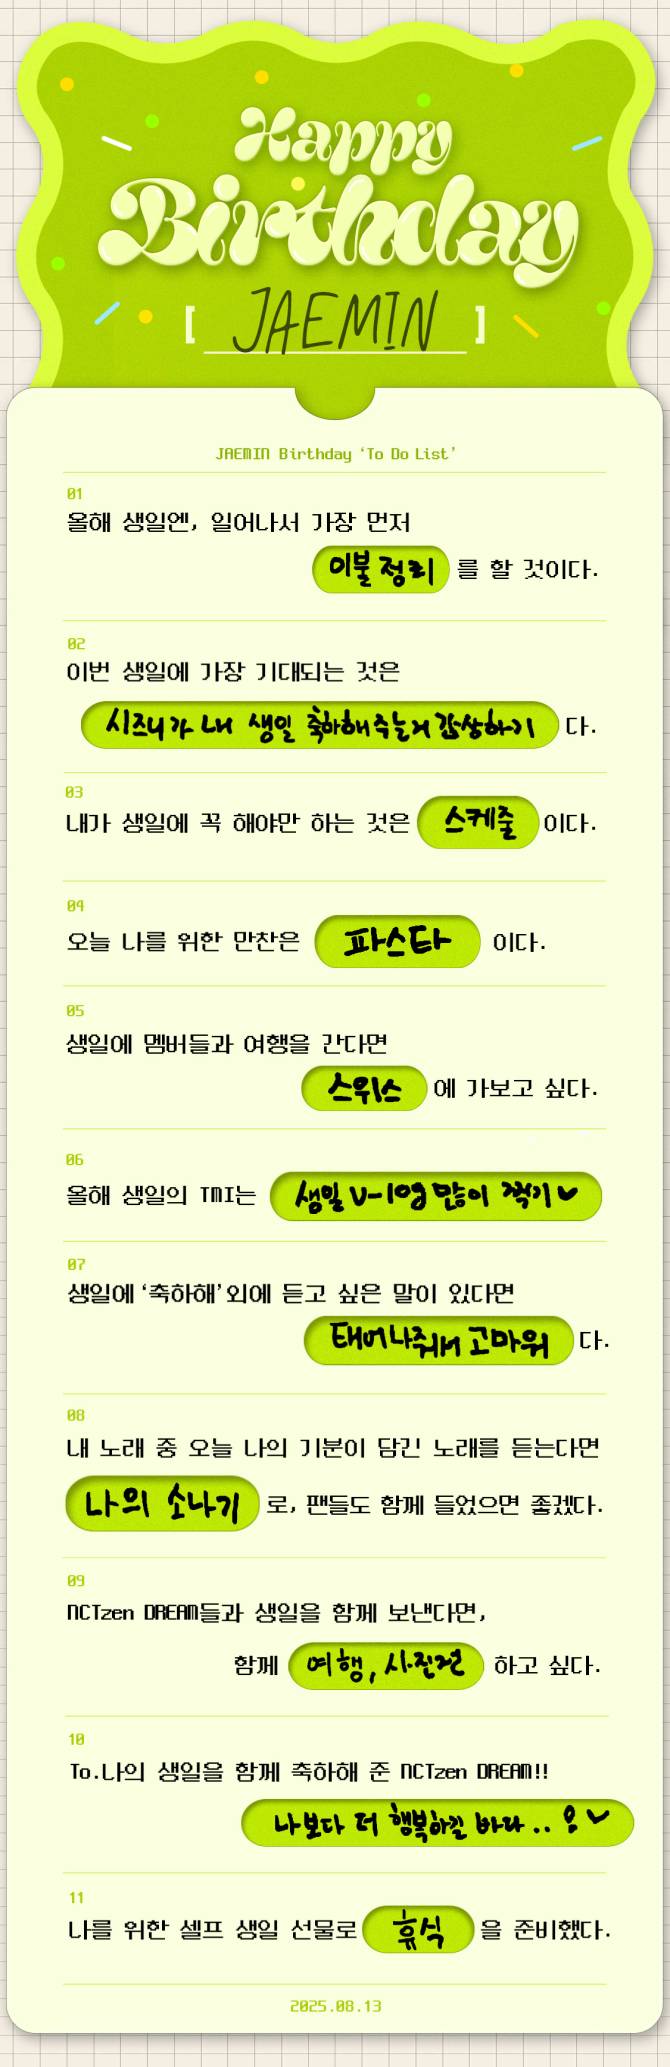 Happy
Birthday
[ JAEMIN ]
JAEMIN Birthday ‘To Do List’
01
올해 생일엔, 일어나서 가장 먼저
이불 정리 를 할 것이다.
02
이번 생일에 가장 기대되는 것은
시즈니가 내 생일 축하해주는거 감상하기 다.
03
내가 생일에 꼭 해야만 하는 것은 스케줄 이다.
04
오늘 나를 위한 만찬은 파스타 이다.
05
생일에 멤버들과 여행을 간다면
스위스 에 가보고 싶다.
06
올해 생일의 TMI는 생일 V-log 많이 찍기♥
07
생일에 ‘축하해’ 외에 듣고 싶은 말이 있다면
태어나줘서 고마워 다.
08
내 노래 중 오늘 나의 기분이 담긴 노래를 듣는다면
나의 소나기 로, 팬들도 함께 들었으면 좋겠다.
09
NCTzen DREAM들과 생일을 함께 보낸다면,
함께 여행, 사진전 하고 싶다.
10
To.나의 생일을 함께 축하해 준 NCTzen DREAM!!
나보다 더 행복하길 바라..!♥
11
나를 위한 셀프 생일 선물로 휴식 을 준비했다.
2025.08.13